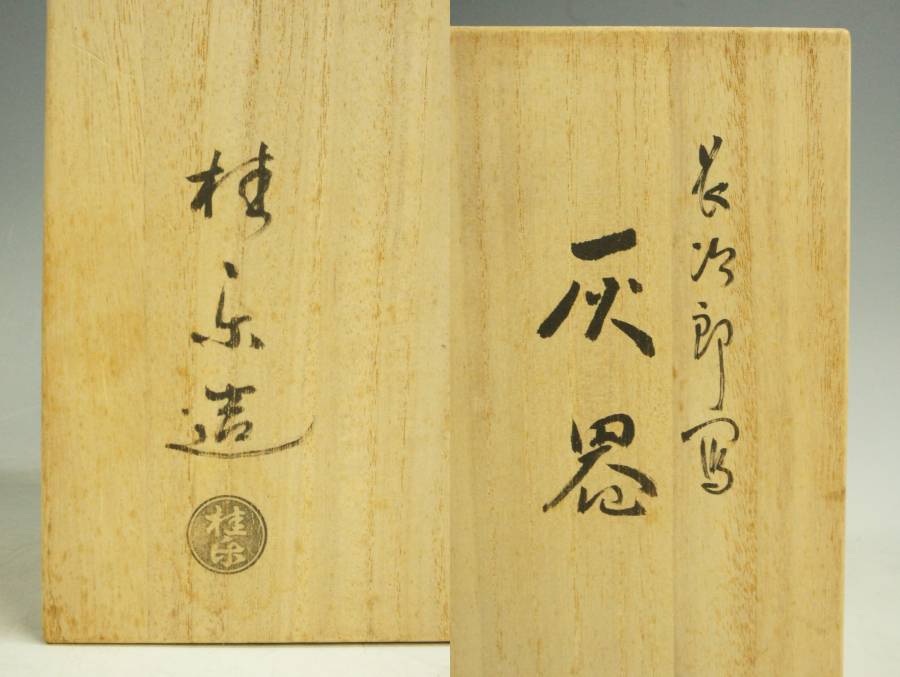 長次郎写
灰器
桂楽造
桂楽